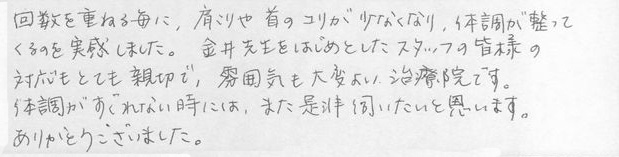 回数を重ねる毎に、肩こりや首のコリが少なくなり、体調が整って
くるのを実感しました。金井先生をはじめとしたスタッフの皆様の
対応もとても親切で、雰囲気も大変よい治療院です。
体調がすぐれない時には、また是非伺いたいと思います。
ありがとうございました。